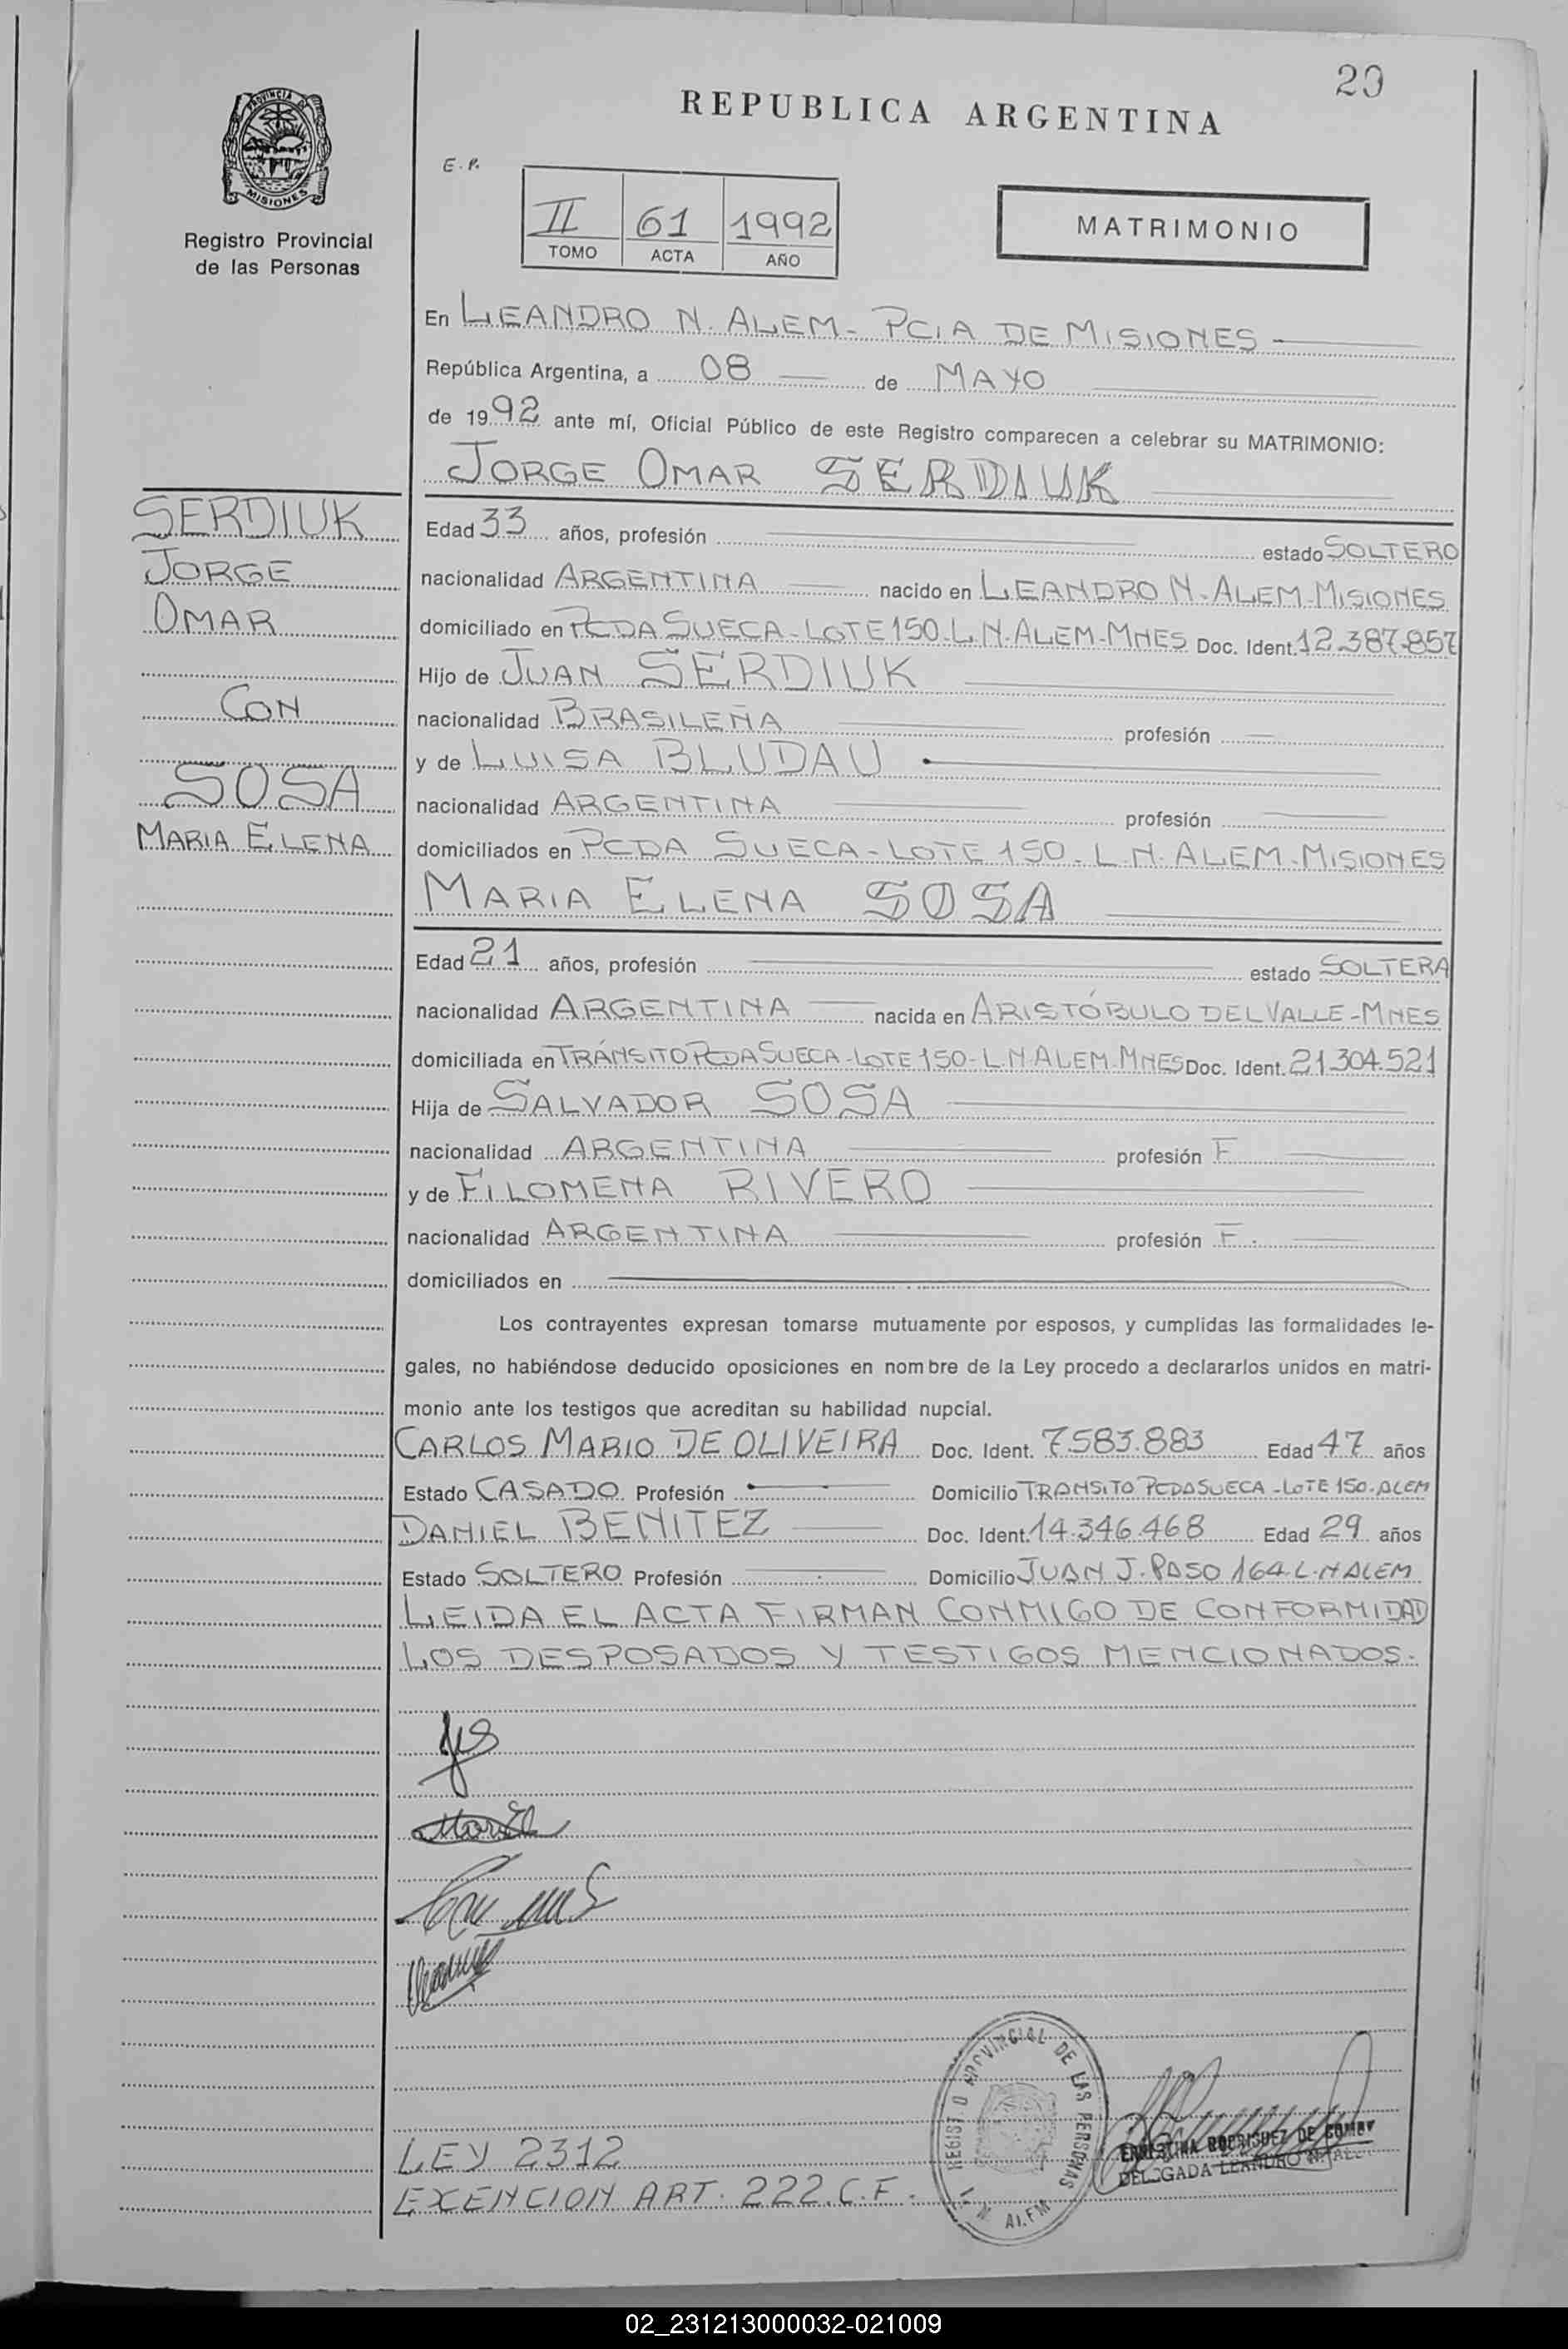 20
REPUBLICA ARGENTINA
PROVINCIA DE
MISIONES
Registro Provincial
de las Personas
E.P.
II 61 1992
TOMO ACTA AÑO
MATRIMONIO
En LEANDRO N. ALEM - PCIA DE MISIONES
República Argentina, a 08 de MAYO
de 1992 ante mí, Oficial Público de este Registro comparecen a celebrar su MATRIMONIO:
JORGE OMAR SERDIUK
SERDIUK
JORGE
OMAR
CON
SOSA
MARIA ELENA
Edad 33 años, profesión estado SOLTERO
nacionalidad ARGENTINA nacido en LEANDRO N. ALEM-MISIONES
domiciliado en PCDA SUECA-LOTE 150-L.N.ALEM-MNES Doc. Ident. 12.387.857
Hijo de JUAN SERDIUK
nacionalidad BRASILEÑA profesión
y de LUISA BLUDAU
nacionalidad ARGENTINA profesión
domiciliados en PCDA SUECA-LOTE 150-L.N.ALEM-MISIONES
MARIA ELENA SOSA
Edad 21 años, profesión estado SOLTERA
nacionalidad ARGENTINA nacida en ARISTÓBULO DEL VALLE-MNES
domiciliada en TRÁNSITO PCDA SUECA-LOTE 150-L.N.ALEM.MNES Doc. Ident. 21.304.521
Hija de SALVADOR SOSA
nacionalidad ARGENTINA profesión F
y de FILOMENA RIVERO
nacionalidad ARGENTINA profesión F.
domiciliados en
Los contrayentes expresan tomarse mutuamente por esposos, y cumplidas las formalidades le-
gales, no habiéndose deducido oposiciones en nombre de la Ley procedo a declararlos unidos en matri-
monio ante los testigos que acreditan su habilidad nupcial.
CARLOS MARIO DE OLIVEIRA Doc. Ident. 7.583.883 Edad 47 años
Estado CASADO Profesión Domicilio TRANSITO PCDA SUECA-LOTE 150-ALEM
DANIEL BENITEZ Doc. Ident. 14.346.468 Edad 29 años
Estado SOLTERO Profesión Domicilio JUAN J. PASO 164 L.N ALEM
LEIDA EL ACTA FIRMAN CONMIGO DE CONFORMIDAD
LOS DESPOSADOS Y TESTIGOS MENCIONADOS.
REGISTRO PROVINCIAL DE LAS PERSONAS
L. N. ALEM
RODRIGUEZ DE
DELEGADA LEANDRO N. ALEM
LEY 2312
EXENCION ART. 222.C.F.
02_231213000032-021009